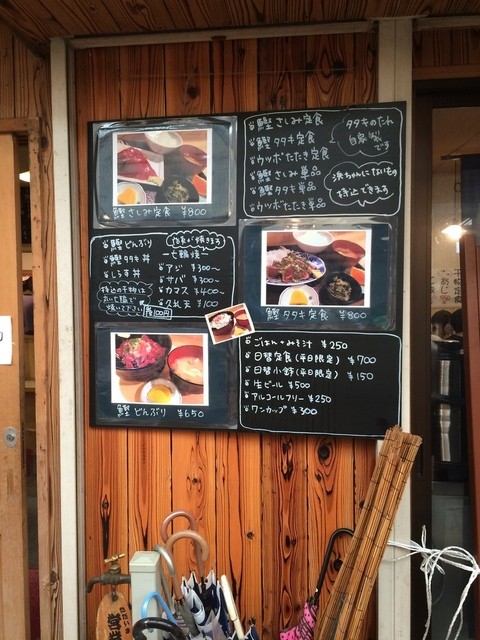 鰹さしみ定食 ¥800
鰹さしみ定食
鰹タタキ定食
ウツボたたき定食
鰹さしみ単品
鰹タタキ単品
ウツボたたき単品
タタキのたれ
自家製
です
浜ちゃんにないもの
持込できます
鰹どんぶり
鰹タタキ丼
しらす丼
持込の干物は
おいど脇で
焼いて下さい
席100円
店長が焼きます
ー七輪焼ー
アジ ¥300〜
サバ ¥300〜
カマス ¥400〜
天 ¥100
鰹タタキ定食 ¥800
鰹どんぶり ¥650
ごはん・みそ汁 ¥250
日替定食(平日限定) ¥700
日替小鉢(平日限定) ¥150
生ビール ¥500
アルコールフリー ¥250
ワンカップ ¥300